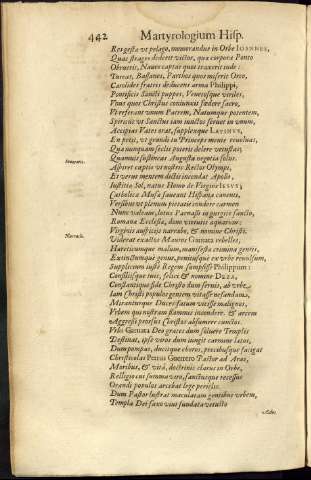 442 Martyrologium Hisp.
Res gesta vt pelago, memorandus in Orbe IOANNES,
Quas strages dederit victor, qua corpora Ponto
Obruerit, Naues captas quas traxerit inde:
Turcas, Bassanes, Parthos quos miserit Orco,
Carolides fratres deducens arma Philippi,
Pontificis Sancti puppes, Venetosque viriles,
Vnus quos Christus coniunxit foedere sacro,
Vt fererant vnum Patrem, Natumque potentem,
Spiritus vt Sanctus iam iunctos seruet in vnum,
Accipias Vates orat, supplexque LATINVS,
En petit, vt grandi tu Princeps mente reuoluas,
Quæ nunquam sæclis poteris delere vetustas,
Quamuis sustineas Augusta negotia solus.
Inuocatio.
Aspiret captis vt nostris Rector Olympi,
Et verus mentem dictis incendat Apollo,
Iustitiæ Sol, natus Homo de Virgine IESVS;
Catholica Musa faueant Hispana canenti,
Versibus vt plenum pietatis condere carmen
Nunc valeam, lotus Parnasi in gurgite sancto,
Romana Ecclesia, dum virtutis aquarum:
Narratio.
Virginis auspicijs narrabo, & nomine Christi.
Viderat exactos Mauros GRANATA rebelles,
Hæreticumque malum, manifesta crimina gentis,
Extinctumque genus, penitusque ex vrbe reuulsum,
Supplicium iussu Regem sumpsisse Philippum:
Consilioque tuis, felice & nomine DEZA,
Constantique fide Christo dum seruis, ab vrbe
Iam Christi populos gentem vitasse nefandam,
Miranturque Duces fatum vicisse malignos,
Vrbem qui nostram flammis incendere, & arcem
Aggressi prorsus Christos absumere cunctos.
Vrbs GRANATA Deo grates dum soluere Templis
Destinat, ipse viros dum iungit carmine latos,
Dum pompas, ducitque choros, precibusque fatigat
Christicolas Petrus Guerrero Pastor ad Aras,
Moribus, & vitâ, doctrinis clarus in Orbe,
Relligio cui summa viro, sanctusque recessus
Orandi populos arcebat lege periclis.
Dum Pastor lustrat maculatam gentibus vrbem,
Templa Dei saxo viuo fundata vetusto